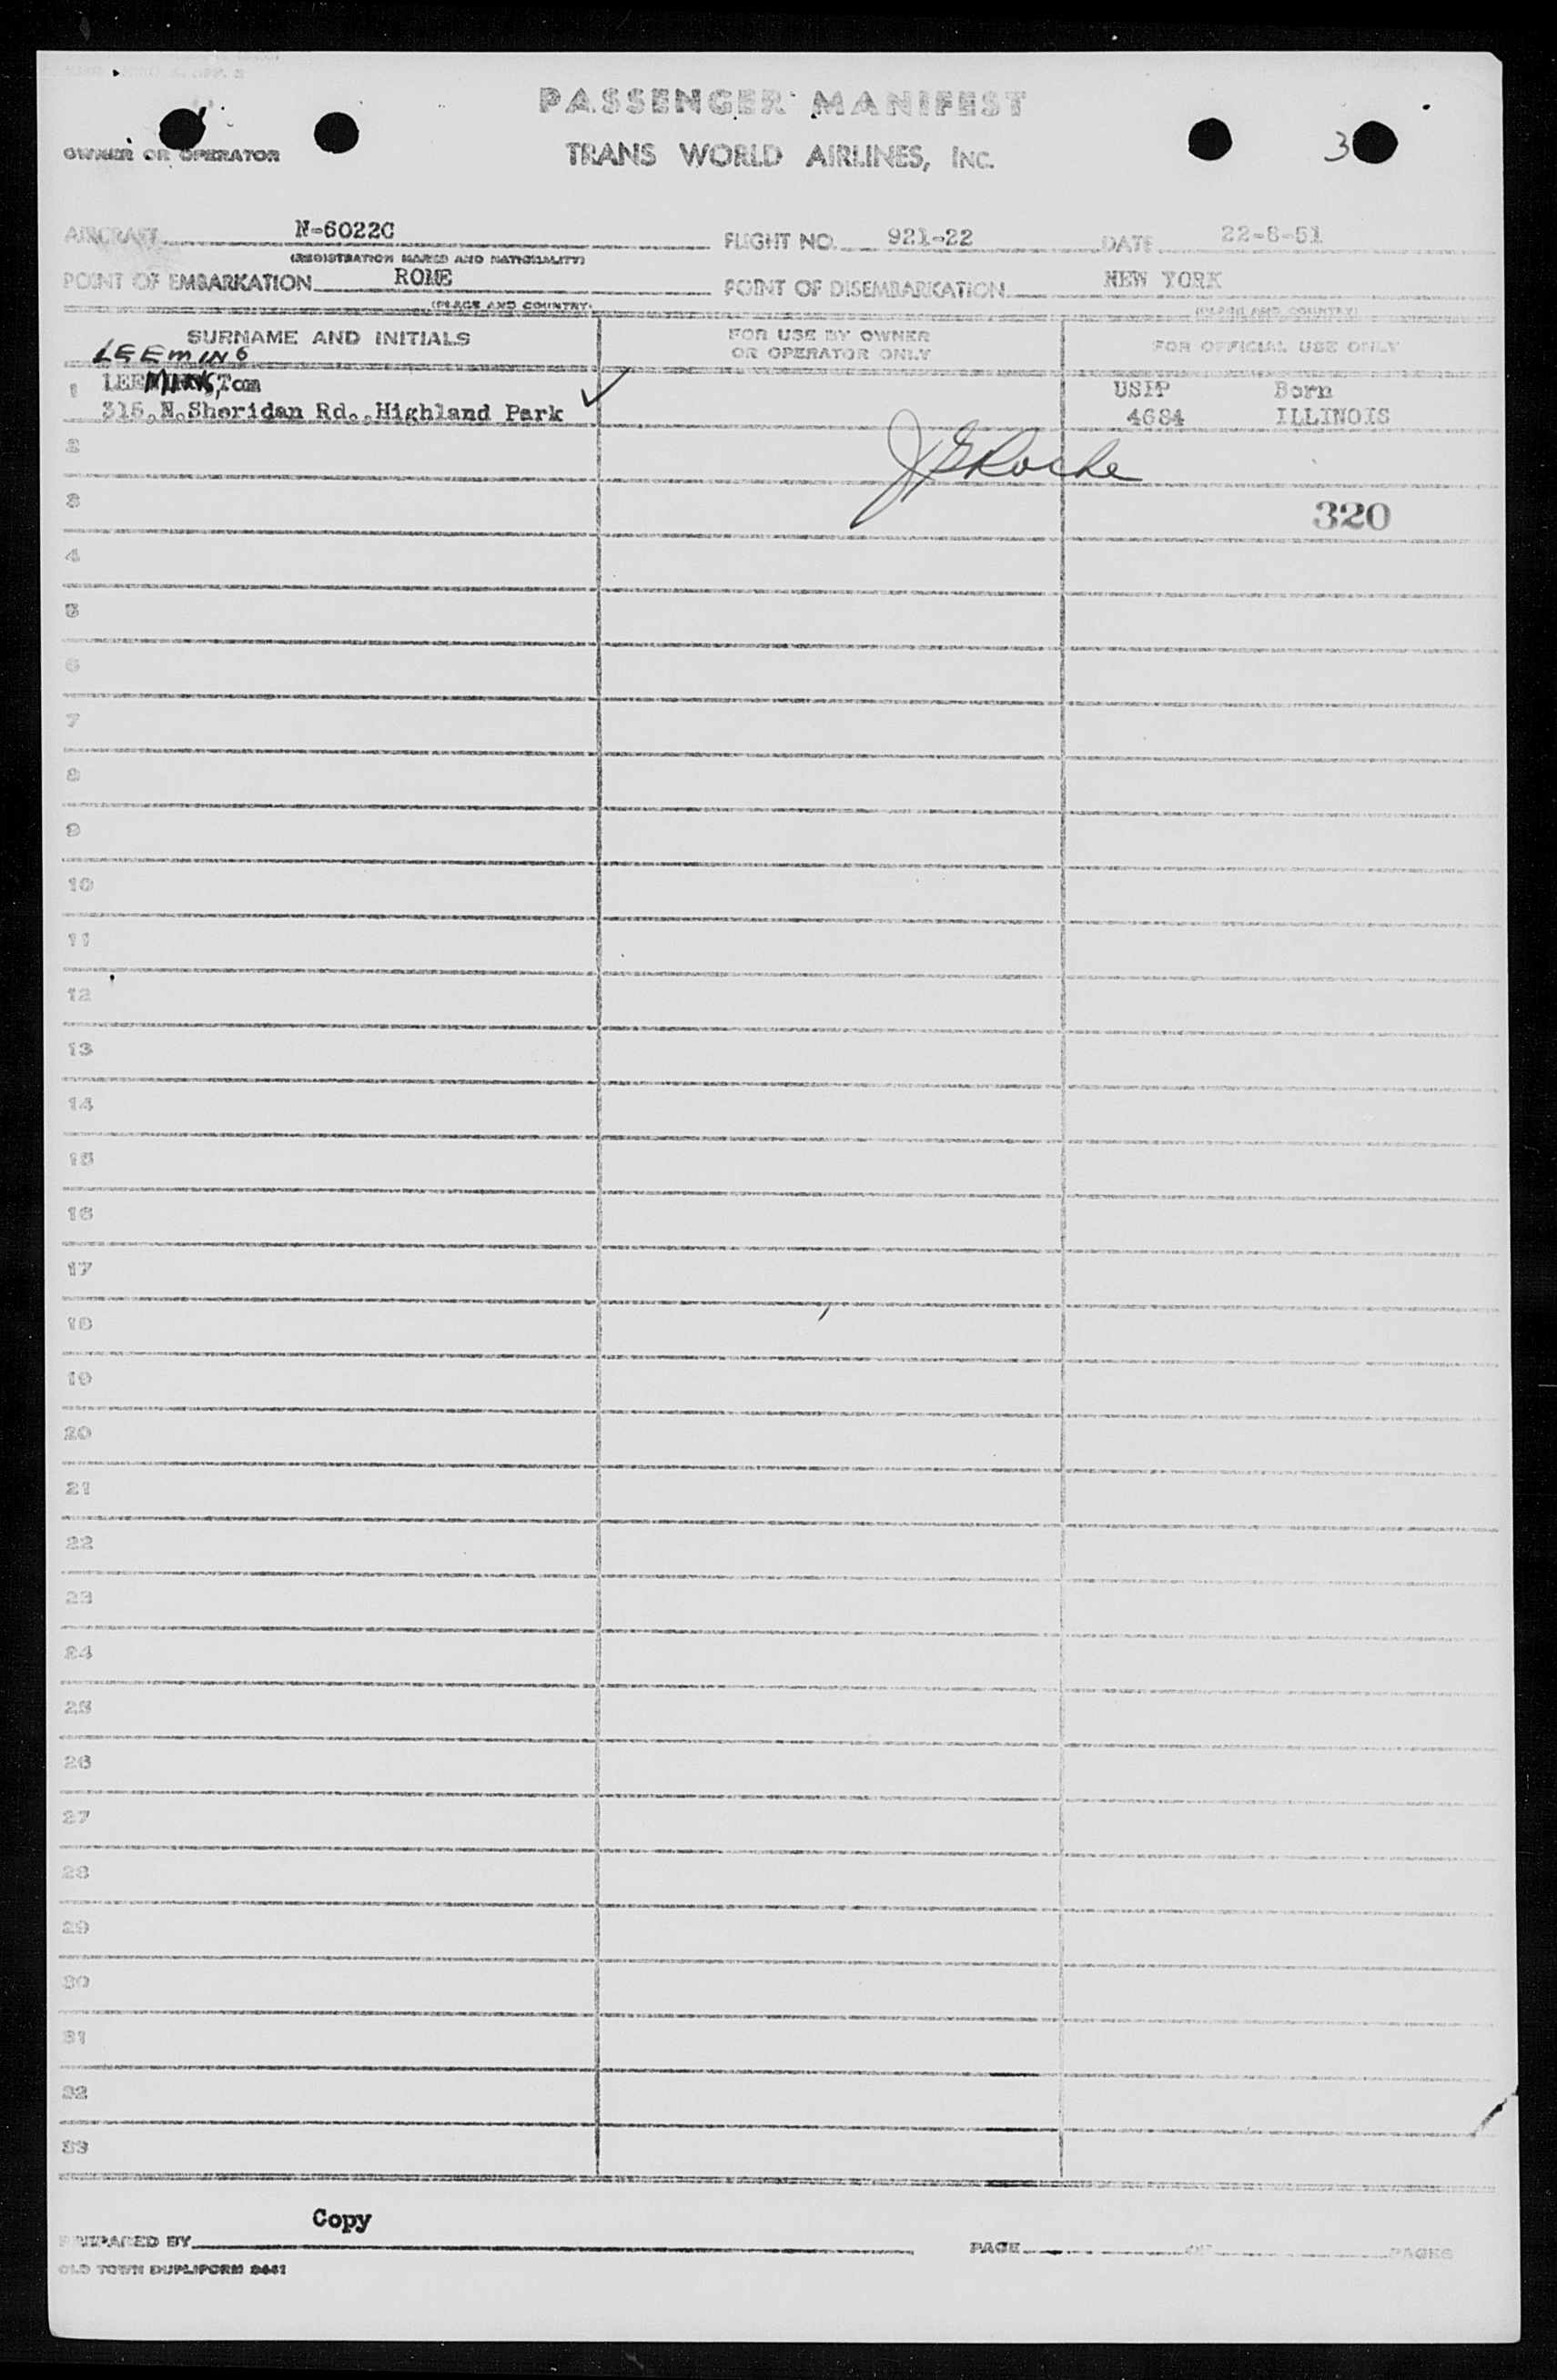 PASSENGER MANIFEST
OWNER OR OPERATOR
TRANS WORLD AIRLINES, INC.
3
AIRCRAFT N-6022C FLIGHT NO. 921-22 DATE 22-8-51
(REGISTRATION MARKS AND NATIONALITY)
POINT OF EMBARKATION ROME POINT OF DISEMBARKATION NEW YORK
(PLACE AND COUNTRY) (PLACE AND COUNTRY)
SURNAME AND INITIALS FOR USE BY OWNER OR OPERATOR ONLY FOR OFFICIAL USE ONLY
LEEMING
1 LEE Tom USPP Born
N.Sheridan Rd.,Highland Park 4684 ILLINOIS
2
3 320
4
5
6
7
8
9
10
11
12
13
14
15
16
17
18
19
20
21
22
23
24
25
26
27
28
29
30
31
32
33
Copy
PREPARED BY PAGE OF PAGES
OLD TOWN DUPLIFORM 2441